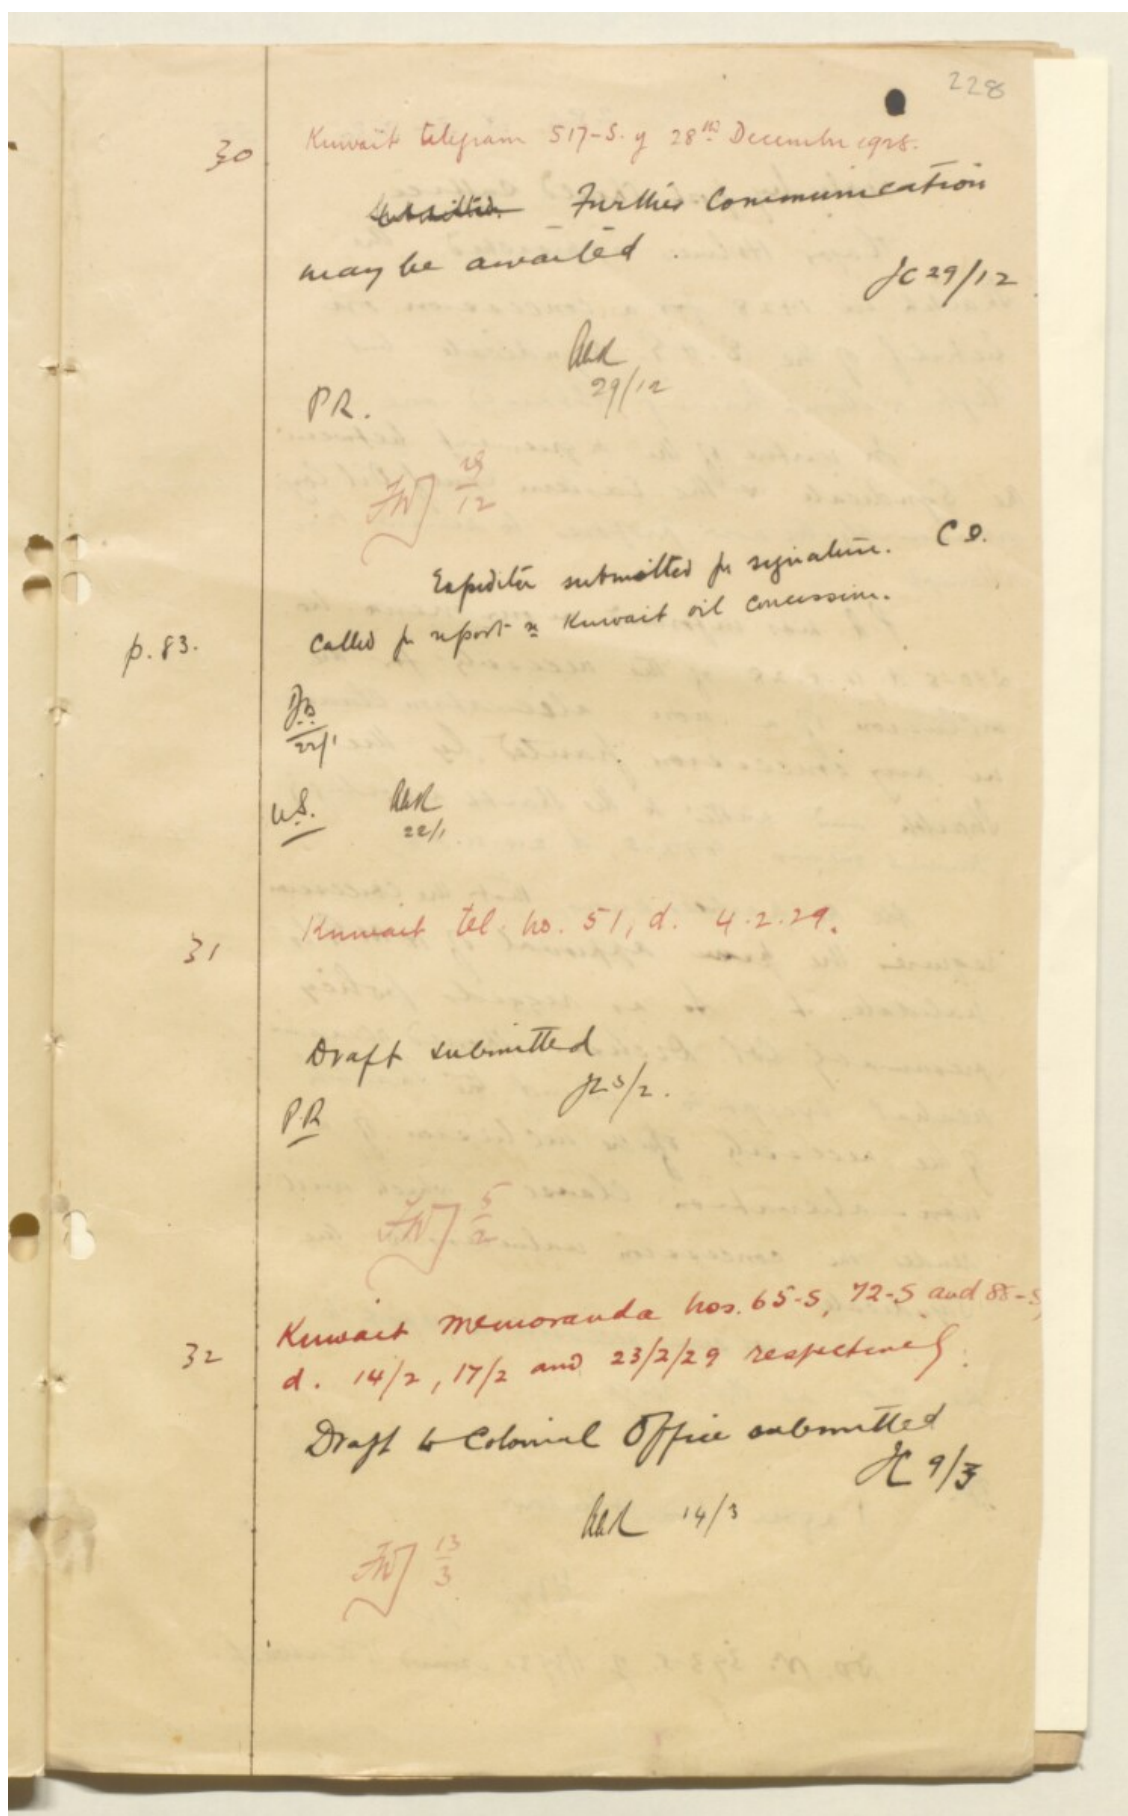 228
30
Kuwait telegram 517-S. of 28th December 1928.
Submitted. Further Communication
may be awaited.
JC 29/12
29/12
PR.
28/12
Expedite submitted for signature. C.O.
called for report re Kuwait oil concession.
p. 83.
22/1
U.S.
22/1
31
Kuwait tel. no. 51, d. 4.2.29.
Draft submitted
5/2.
P.R
5/2
32
Kuwait Memoranda nos. 65-S, 72-S and 88-S,
d. 14/2, 17/2 and 23/2/29 respectively.
Draft to Colonial Office submitted
JC 9/3
14/3
13/3